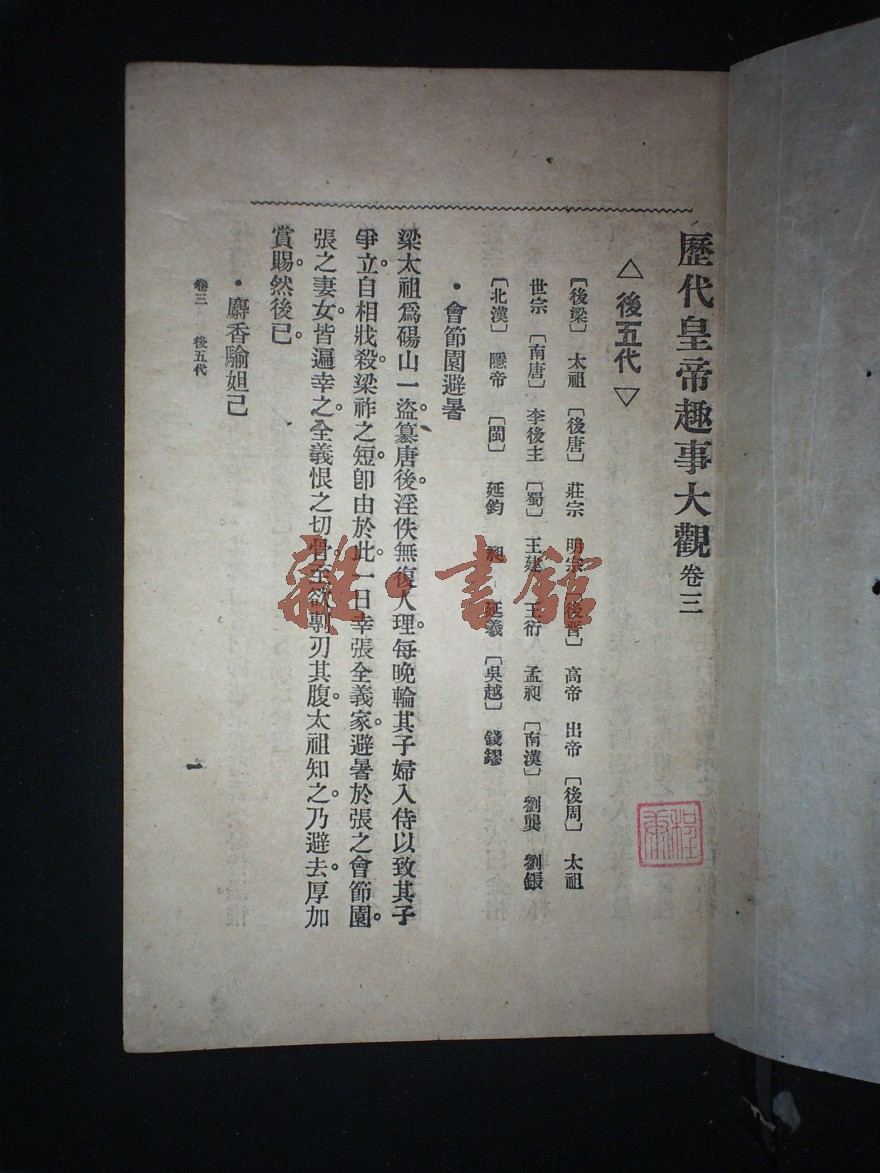 歷代皇帝趣事大觀 卷三
△ 後五代 ▽
〔後梁〕 太祖 〔後唐〕 莊宗 明宗 〔後晋〕 高帝 出帝 〔後周〕 太祖
世宗 〔南唐〕 李後主 〔蜀〕 王建 王衍 孟昶 〔南漢〕 劉龑 劉鋹
〔北漢〕 隱帝 〔閩〕 延鈞 昶 延羲 〔吳越〕 錢鏐
•會節園避暑
梁太祖爲碭山一盜。簒唐後。淫佚無復人理。每晚輪其子婦入侍以致其子
爭立。自相戕殺。梁祚之短。卽由於此。一日幸張全義家。避暑於張之會節園。
張之妻女皆遍幸之。全義恨之切骨。至欲剚刃其腹。太祖知之。乃避去。厚加
賞賜。然後已。
•麝香騟妲己
卷三 後五代
一
雜·書館